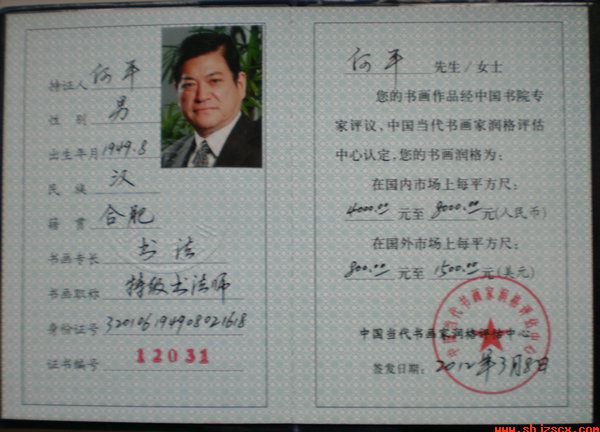 持证人 何平
性 别 男
出生年月 1949.8
民 族 汉
籍 贯 合肥
书画专长 书法
书画职称 特级书法师
身份证号 320106194908021618
证书编号 12031
何平 先生/女士
您的书画作品经中国书院专
家评议,中国当代书画家润格评估
中心认定,您的书画润格为:
在国内市场上每平方尺:
4000.00 元至 8000.00 元(人民币)
在国外市场上每平方尺:
800.00 元至 1500.00 元(美元)
中国当代书画家润格评估中心
签发日期: 2012年3月8日
中国当代书画家润格评估中心
www.shjzscx.com